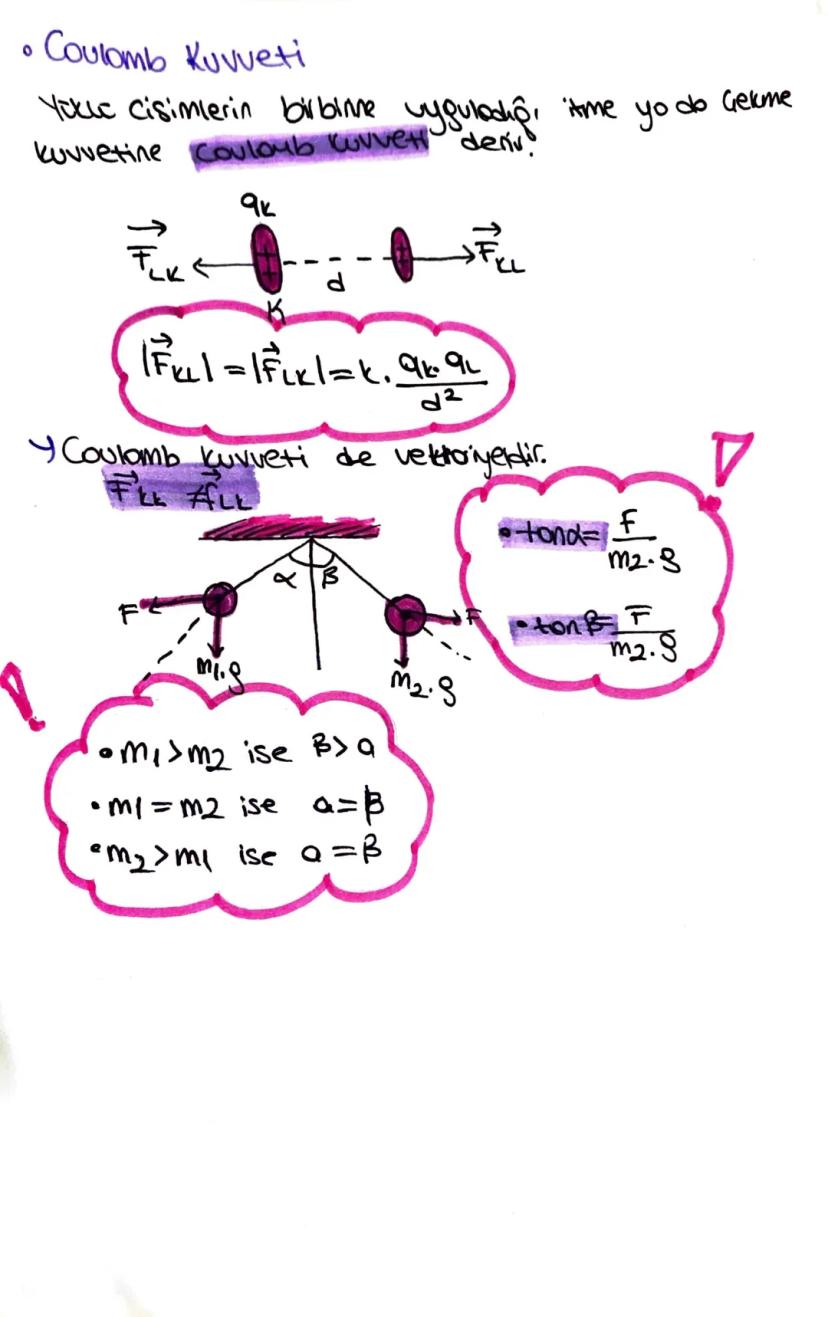 • Coulomb Kuvveti
Yüklü cisimlerin birbirine uyguladığı itme ya da çekme
kuvvetine coulomb kuvveti denir.
qk
F⃗LK d F⃗KL
K
|F⃗KL| = |F⃗LK| = k. qk.qL / d²
Coulomb kuvveti de vektöriyeldir.
≠
• tanα= F / m2.g
• tanβ= F / m2.g
α β
F F
m1.g m2.g
• m1>m2 ise β>a
• m1=m2 ise a=β
• m2>m1 ise a=β